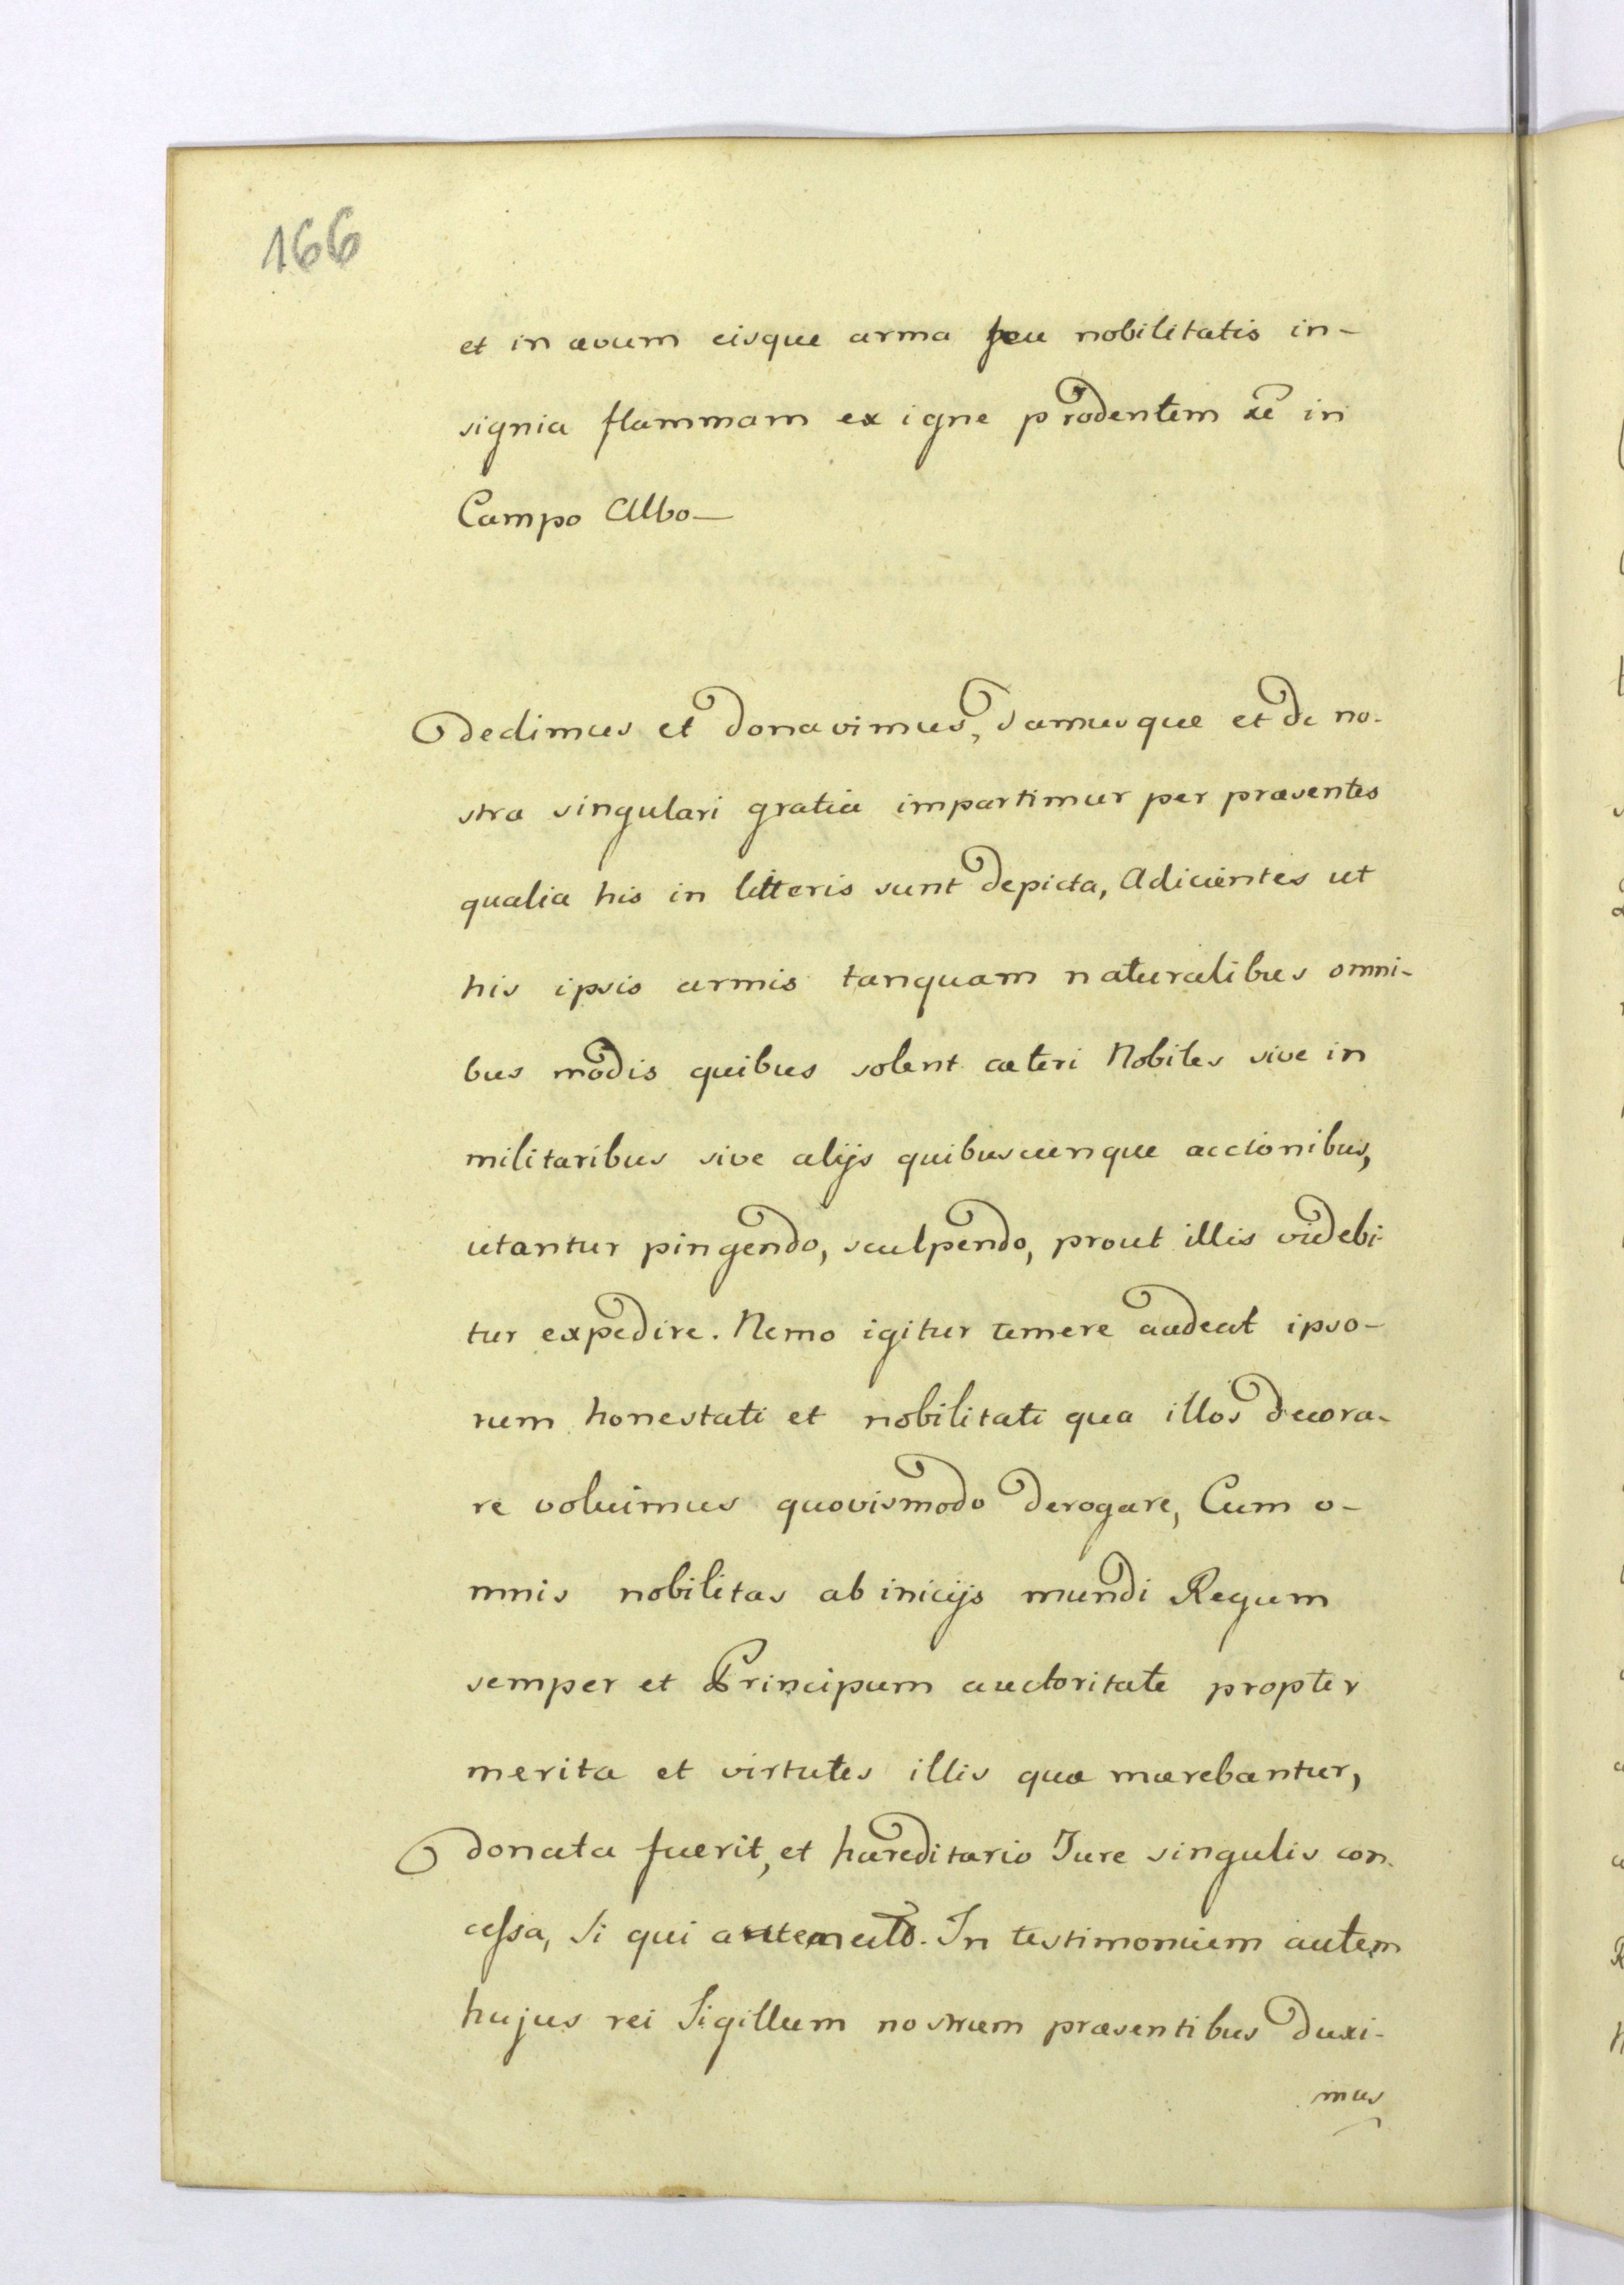 166
et in ævum eisque arma seu nobilitatis in-
signia flammam ex igne prodentem se in
Campo Albo—
dedimus et donavimus, damusque et de no-
stra singulari gratia impartimur per præsentes
qualia his in litteris sunt depicta, Adicientes ut
his ipsis armis tanquam naturalibus omni-
bus modis quibus solent cæteri Nobiles sive in
militaribus sive alijs quibuscunque accionibus,
utantur pingendo, sculpendo, prout illis videbi-
tur expedire. Nemo igitur temere audeat ipso-
rum honestati et nobilitati qua illos decora-
re voluimus quovismodo derogare, Cum o-
mnis nobilitas ab inicijs mundi Regum
semper et Principum auctoritate propter
merita et virtutes illis quæ mærebantur,
donata fuerit, et hæreditario Jure singulis con-
cessa, Si qui In testimonium autem
hujus rei Sigillum nostrum præsentibus duxi-
mus